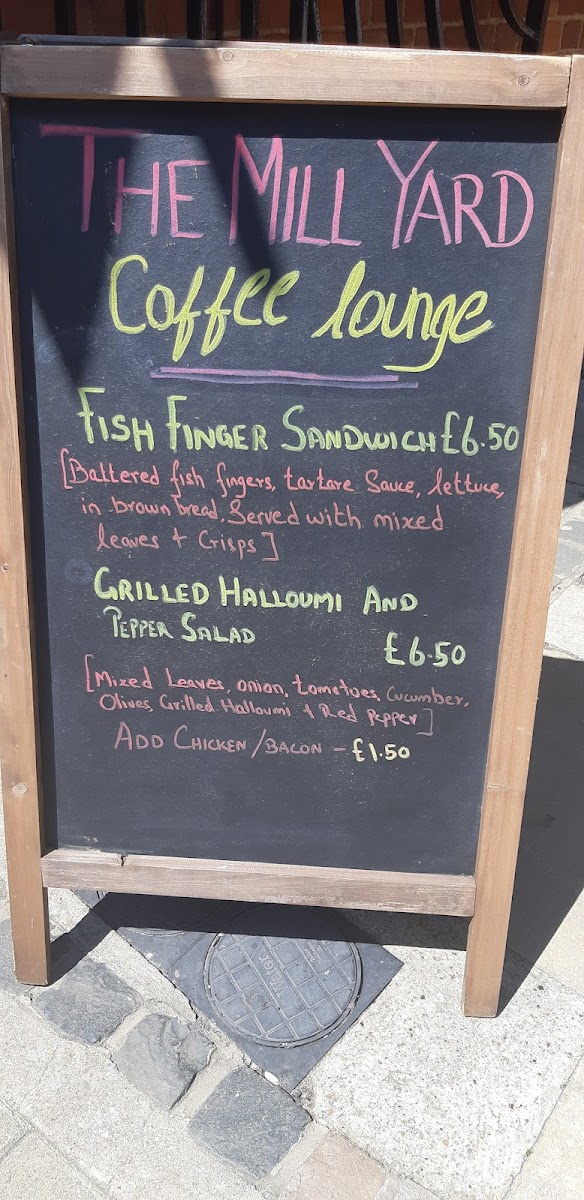 THE MILL YARD
Coffee lounge
FISH FINGER SANDWICH £6.50
[Battered fish fingers, tartare Sauce, lettuce,
in brown bread. Served with mixed
leaves + Crisps]
GRILLED HALLOUMI AND
PEPPER SALAD
£6.50
[Mixed Leaves, onion, tomatoes, Cucumber,
Olives, Grilled Halloumi + Red Pepper]
ADD CHICKEN/BACON - £1.50
Water